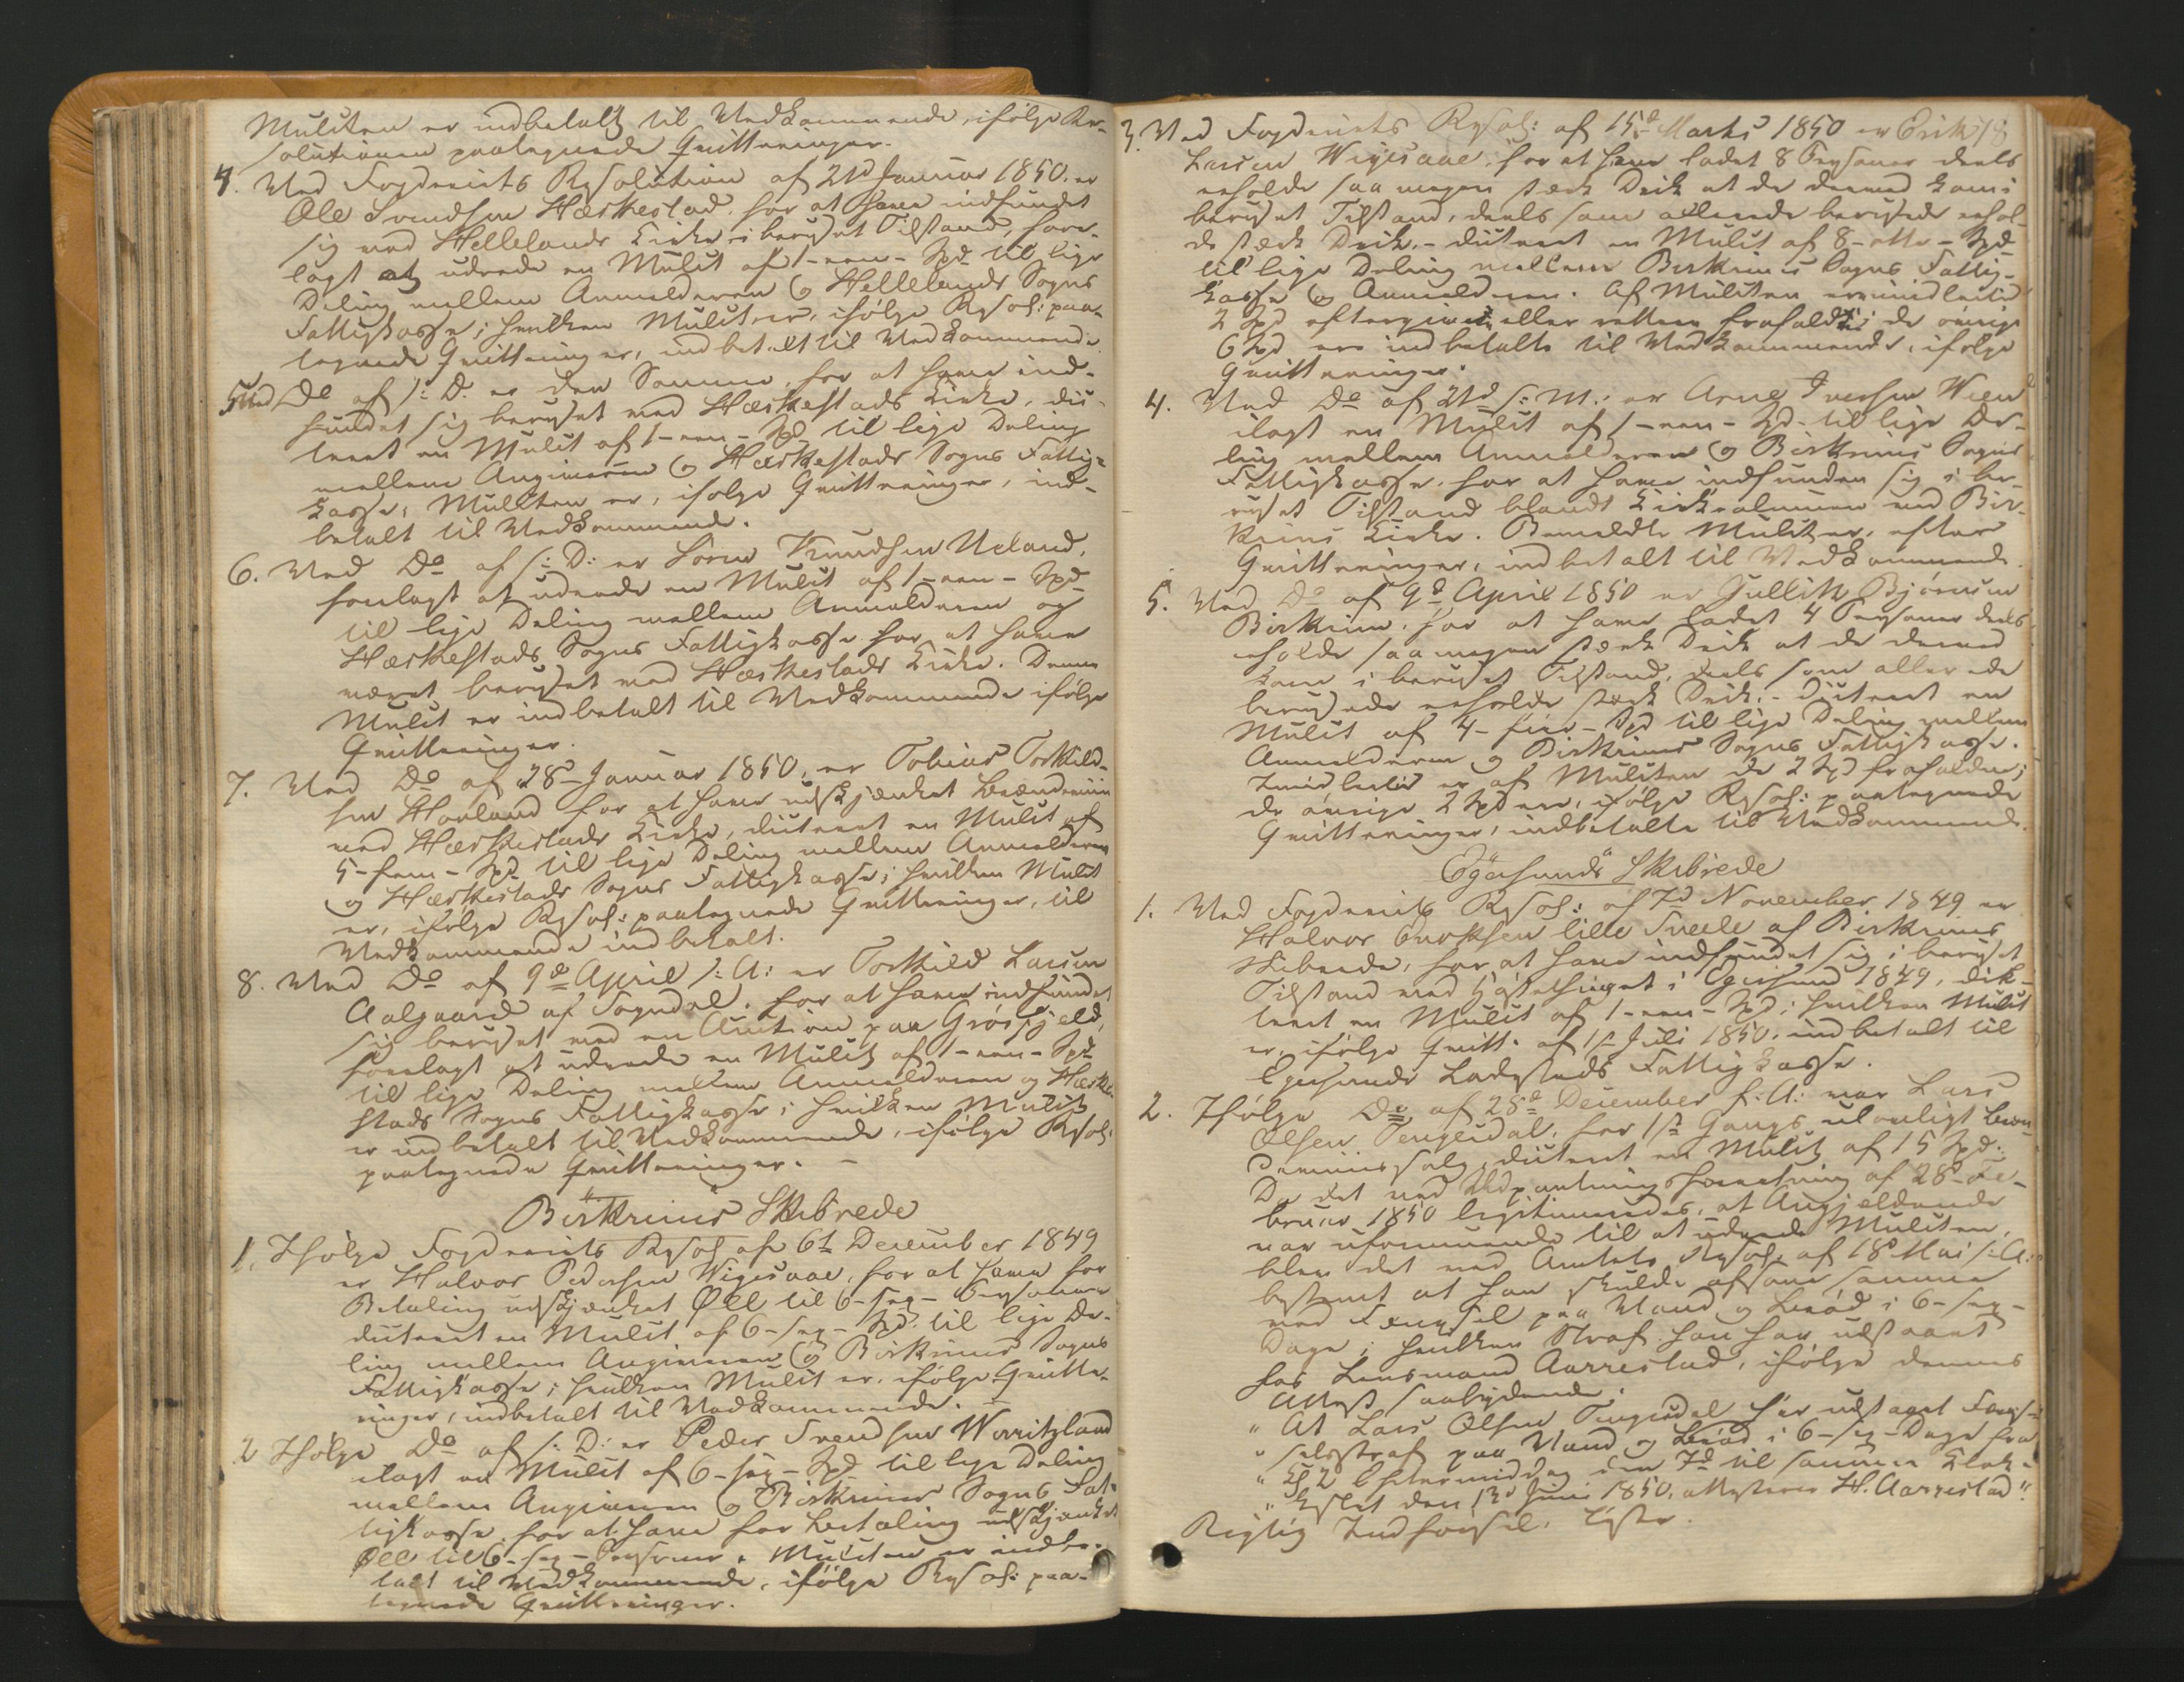 Mulcten er indbetalt til Vedkommende, ifølge Re-
solutionen paategnede Qvitteringer.
4. Ved Fogderiets Resolution af 21d Januar 1850. er
Ole Svendsen Hæskestad, for at have indfundet
sig ved Hellelands Kirke i beruset Tilstand, fore-
lagt at udrede en Mulct af 1-een- Spd til lige
Deling mellem Anmelderen og Hellelands Sogns
Fattigkasse; hvilken Mulct er, ifølge Resol: paa-
tegnede Qvitteringer, indbetalt til Vedkommende.
5 Ved Do af s: D. er den Samme, for at have ind-
fundet sig beruset ved Hæskestads Kirke, dic-
teret en Mulct af 1-een- Spd til lige Deling
mellem Angiveren og Hæskestads Sogns Fattig-
kasse; Mulcten er, ifølge Qvitteringer, ind-
betalt til Vedkommende.
6. Ved Do af s: D: er Søren Knudsen Ueland,
forelagt at udrede en Mulct af 1-een- Spd
til lige Deling mellem Anmelderen og
Hæskestads Sogns Fattigkasse for at have
været beruset ved Hæskestads Kirke. Denne
Mulct er indbetalt til Vedkommende ifølge
Qvitteringer.
7. Ved Do af 28d Januar 1850, er Tobias Torkild-
sen Hovland for at have udskjænket Brændeviin
ved Hæskestads Kirke, dicteret en Mulct af
5-fem- Spd til lige Deling mellem Anmelderen
og Hæskestads Sogns Fattigkasse; hvilken Mulct
er, ifølge Resol: paategnede Qvitteringer, til
Vedkommende indbetalt.
8. Ved Do af 9de April s: A: er Torkild Larsen
Aalgaard af Sogndal, for at have indfundet
sig beruset ved en Auction paa Grøsfjeld,
forelagt at udrede en Mulct af 1-een- Spd
til lige Deling mellem Anmelderen og Hæske-
stads Sogns Fattigkasse; hvilken Mulct
er indbetalt til Vedkommende, ifølge Resol:
paategnede Qvitteringer. -
Birkrims Skibrede
1. Ifølge Fogderiets Resol af 6te December 1849
er Halvor Pedersen Wigesaae, for at have for
Betaling udskjænket Øll til 6-sex- Personer
dicteret en Mulct af 6-sex- Spd. til lige De-
ling mellem Angiveren og Birkrims Sogns
Fattigkasse; hvilken Mulct er, ifølge Qvitte-
ringer, indbetalt til Vedkommende. -
2 Ifølge Do af s: D: er Peder Svendsen
ilagt en Mulct af 6-sex- Spd til lige Deling
mellem Angiveren og Birkrims Sogns Fat-
tigkasse, for at have for Betaling udskjænket
Øll til 6-sex- Personer. Mulcten er indbe-
talt til Vedkommende, ifølge Resol: paa-
tegnede Qvitteringer.
3. Ved Fogderiets Resol: af 15de Marts 1850 er Erik
Larsen Wigesaae, for at have ladet 8 Personer deels
erholde saa megen stærk Drik at de derved kom i
beruset Tilstand, deels som allerede berusede erhol-
de stærk Drik, - dicteret en Mulct af 8-otte- Spd
til lige Deling mellem Birkrims Sogns Fattig-
kasse og Anmelderen. Af Mulcten er imidlertid
2 Spd eftergivet eller retten frafaldt; de øvrige
6 Spd ere indbetalte til Vedkommende, ifølge
Qvitteringer.
4. Ved Do af 21d s: M: er Arne Iversen Ween
ilagt en Mulct af 1-een- Spd. til lige De-
ling mellem Anmelderen og Birkrims Sogns
Fattigkasse, for at have indfunden sig i be-
ruset Tilstand blandt Kirkealmuen ved Bir-
krims Kirke. Bemeldte Mulct er, efter
Qvitteringer, indbetalt til Vedkommende.
5. Ved Do af 9de April 1850 er Gullik Bjørnsen
Birkrim, for at have ladet 4 Personer deels
erholde saa megen stærk Drik at de derved
kom i beruset Tilstand, deels som allerede
berusede erholde stærk Drik, - dicteret en
Mulct af 4-fire- Spd til lige Deling mellem
Anmelderen og Birkrims Sogns Fattigkasse.
Imidlertid er af Mulcten de 2 Spd frafalden;
de øvrige 2 Spd ere, ifølge Resol: paategnede
Qvitteringer, indbetalte til Vedkommende.
Egersunds Skibrede
1. Ved Fogderiets Resol: af 7d November 1849 er
Halvor lille Svele af Birkrims
Skibrede, for at have indfundet sig i beruset
Tilstand ved Høstethinget i Egersund 1849, dic-
teret en Mulct af 1-een- Spd; hvilken Mulct
er, ifølge Qvitt. af 1ste Juli 1850, indbetalt til
Egersunds Ladesteds Fattigkasse.
2. Ifølge Do af 28de December f: A: var Lars
Olsen Tengesdal, for 1ste Gangs ulovligt Bræn-
deviinssalg, dicteret en Mulct af 15 Spd:
Da det ved Udpantningsforretning af 28de Fe-
bruar 1850 legitimeredes, at Angjeldende
var uformuende til at udrede Mulcten,
blev det ved Amtets Resol: af 18de Mai s: A:
bestemt at han skulde afsone samme
med Fængsel paa Vand og Brød i 6-sex-
Dage; hvilken Straf han har udstaaet
hos Lensmand Aarrestad, ifølge dennes
Attest saalydende:
" At Lars Olsen Tengesdal har udstaaet Fæng-
" selsstraf paa Vand og Brød i 6-sex- Dage fra
" Kl 2 Eftermiddag den 7d til samme Klok-
" keslet den 13d Juni 1850, attesterer H. Aarrestad".
Rigtig Indførsel,